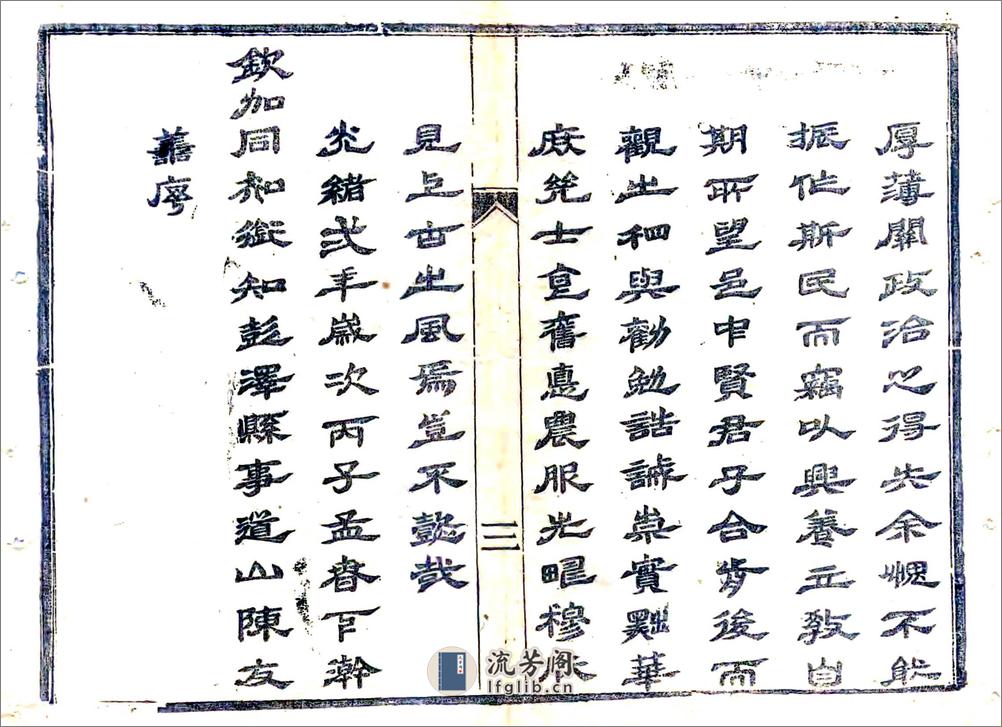 厚薄關政治之得失余媿不能
振作斯民而竊以興養立教自
期所望邑中賢君子合前後而
觀之相與勸勉誥誡崇實黜華
庶幾士食舊惪農服先疇穆然
三
見上古之風焉豈不懿哉
光緒弍年歲次丙子孟春下澣
欽加同知銜知彭澤縣事道山陳友
善序
流芳阁
lfglib.cn